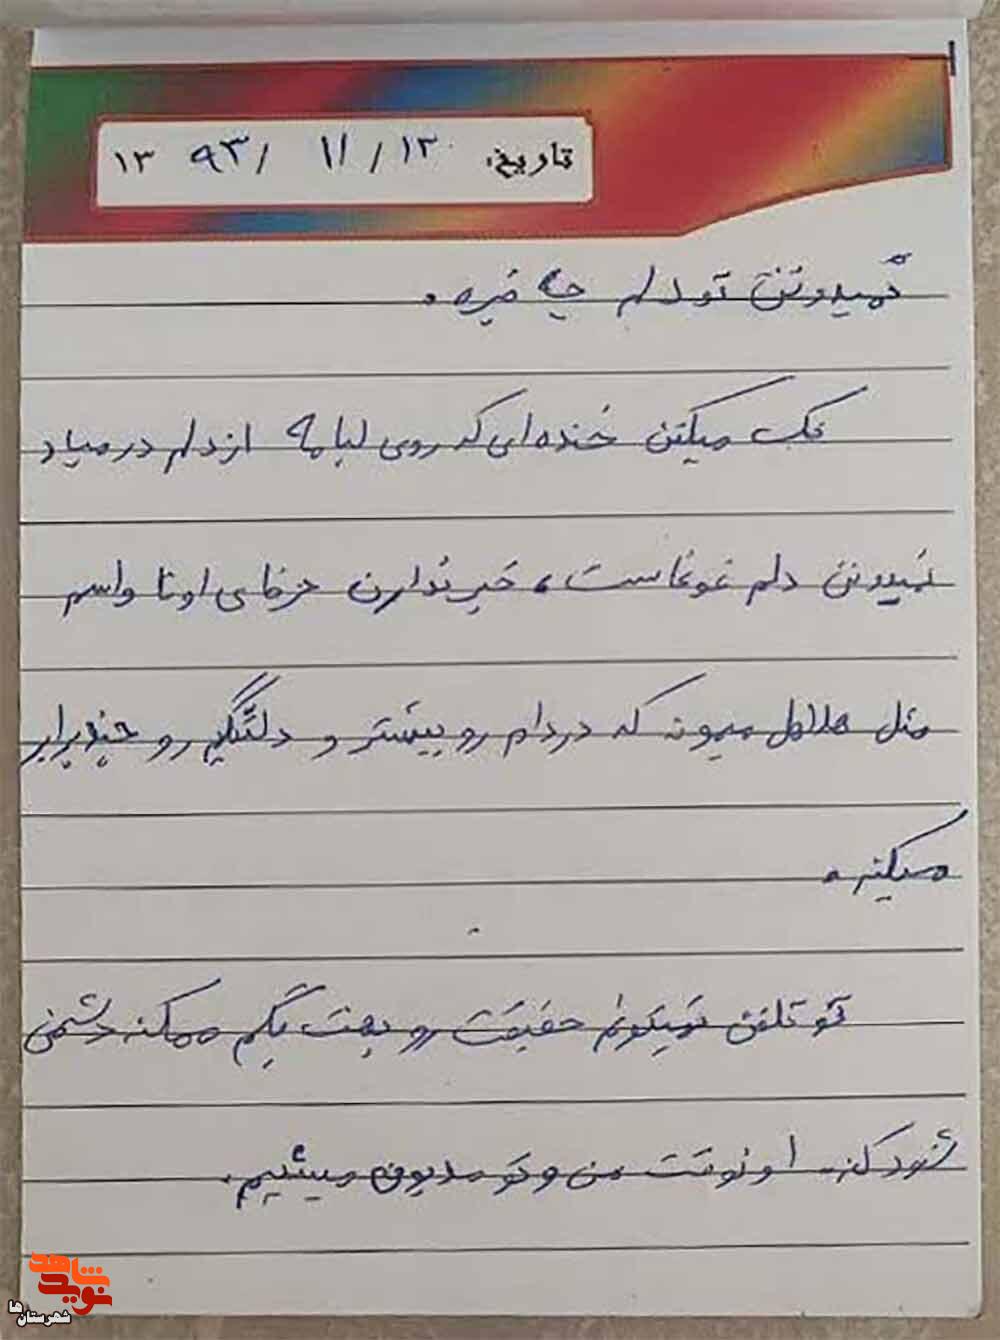 تاریخ: ۱۳۹۳/۱۱/۱۳
نمیدونن تو دلم چه خبره.
فک میکنن خنده ای که روی لبامه از دلم در میاد
نمیدونن دلم غوغاست، خبر ندارن حرفای اونا واسم
مثل هلاهل میمونه که دردام رو بیشتر و دلتنگیم رو چند برابر
میکنه.
تو تلفن نمیتونم حقیقت رو بهت بگم ممکنه دشمن
شنود کنه. اونوقت من و تو مدیون میشیم.
نوید شاهد
شهرستان ها